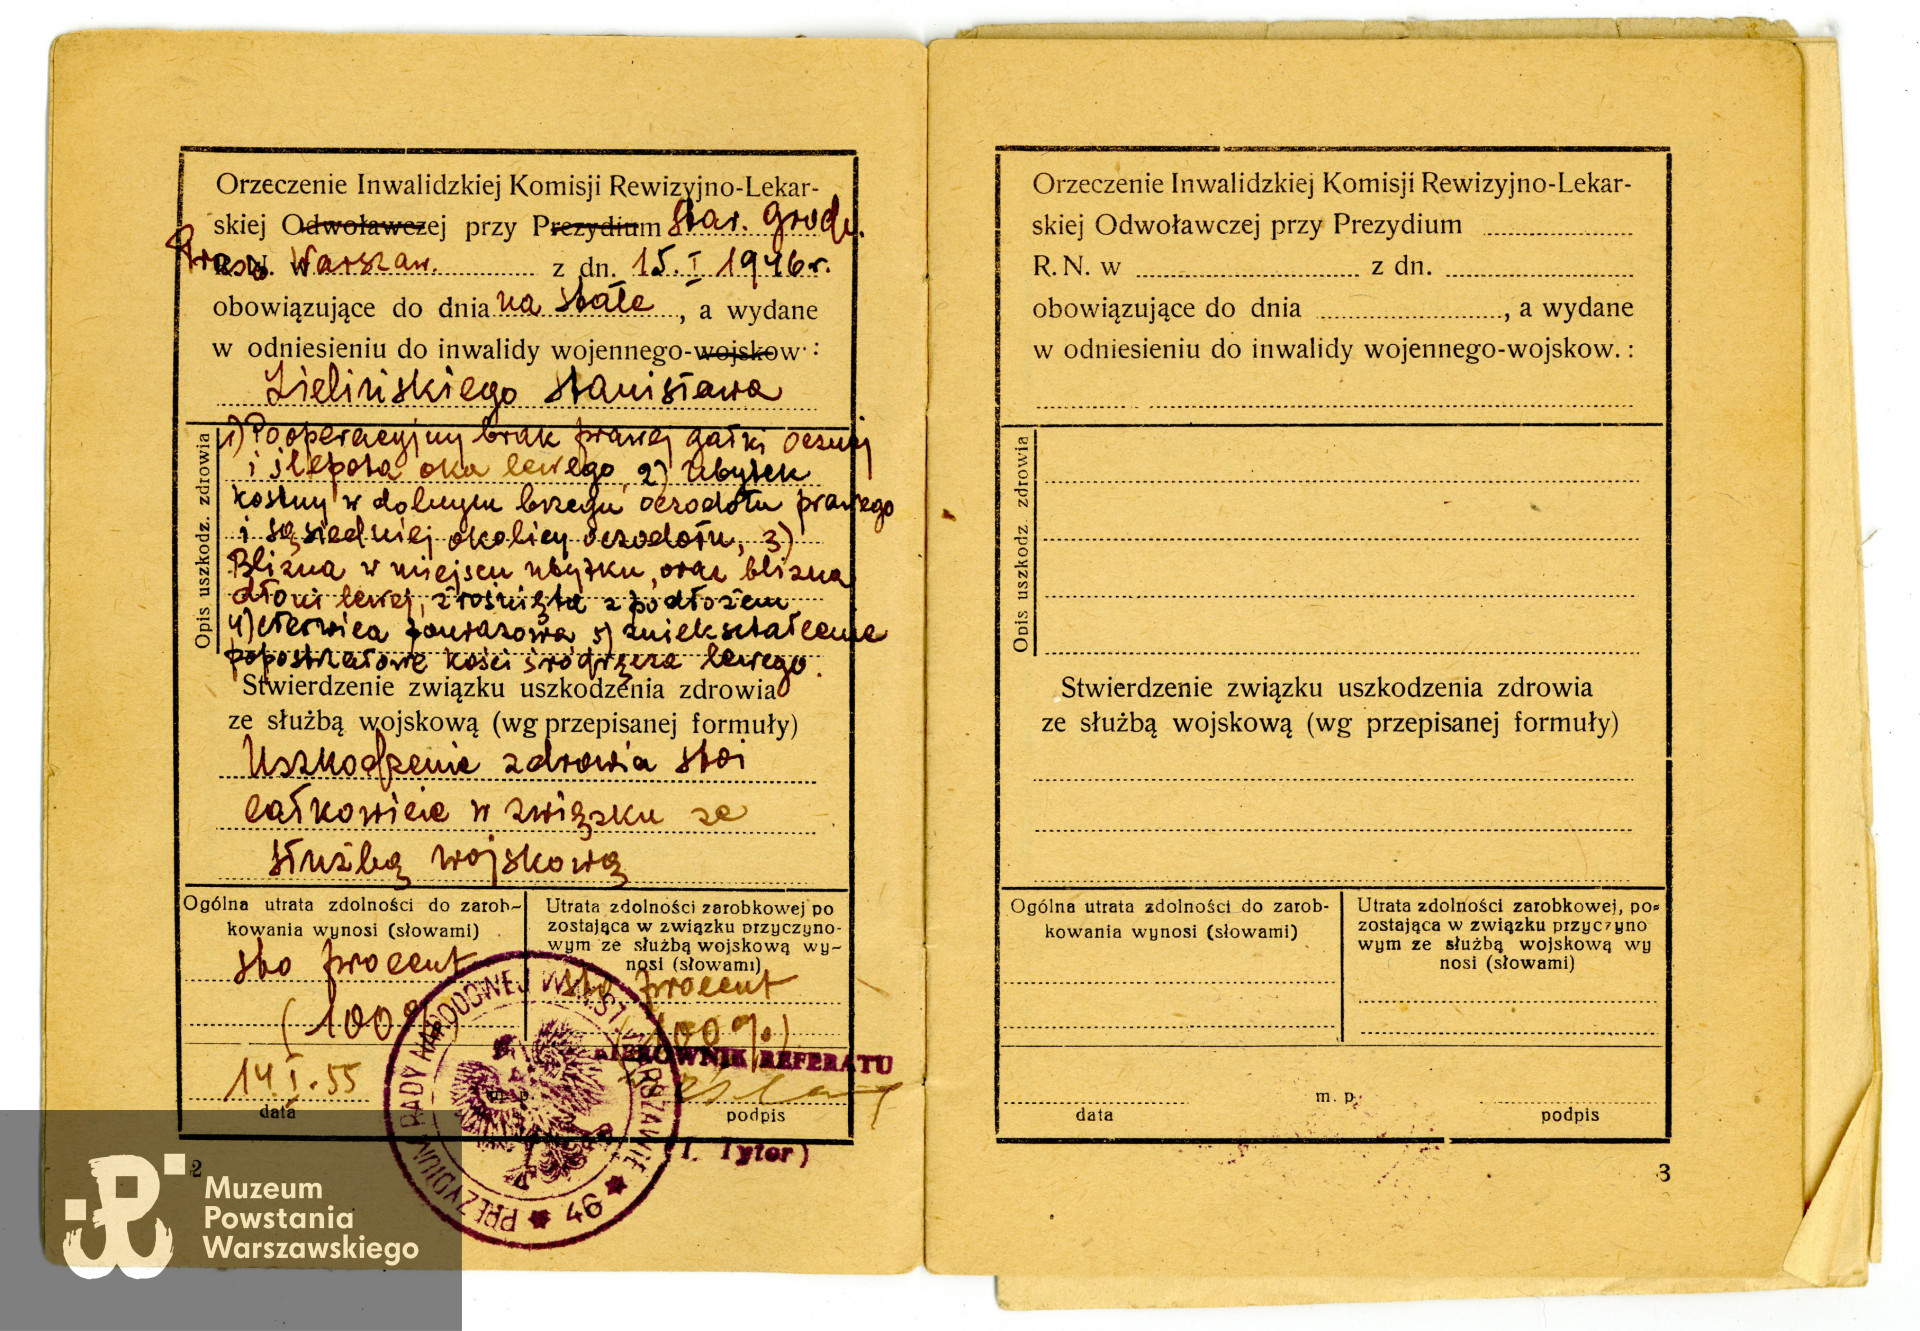 Orzeczenie Inwalidzkiej Komisji Rewizyjno-Lekar-
skiej Odwoławczej przy Prezydium Star. Grodz.
R. N. Warszaw. z dn. 15.I 1946 r.
obowiązujące do dnia na stałe, a wydane
w odniesieniu do inwalidy wojennego-wojskow.:
Zielińskiego Stanisława
Opis uszkodz. zdrowia
1) Pooperacyjny brak prawej gałki ocznej
i ślepota oka lewego, 2) Ubytek
kostny w dolnym brzegu oczodołu prawego
i sąsiedniej okolicy oczodołu, 3)
Blizna w miejscu ubytku, oraz blizna
dłoni lewej, zrośnięta z podłożem
4) czerwica pourazowa 5) zniekształcenie
popostrzałowe kości śródręcza lewego.
Stwierdzenie związku uszkodzenia zdrowia
ze służbą wojskową (wg przepisanej formuły)
Uszkodzenie zdrowia stoi
całkowicie w związku ze
służbą wojskową
Ogólna utrata zdolności do zarob-
kowania wynosi (słowami)
sto procent
(100%
Utrata zdolności zarobkowej po
zostająca w związku przyczyno-
wym ze służbą wojskową wy-
nosi (słowami)
sto procent
(100%)
14.I.55
data
m. p.
KIEROWNIK REFERATU
podpis
(I. Tytor)
PREZYDIUM RADY NARODOWEJ W M. ST. WARSZAWIE
46
2
Orzeczenie Inwalidzkiej Komisji Rewizyjno-Lekar-
skiej Odwoławczej przy Prezydium
R. N. w z dn.
obowiązujące do dnia , a wydane
w odniesieniu do inwalidy wojennego-wojskow. :
Opis uszkodz. zdrowia
Stwierdzenie związku uszkodzenia zdrowia
ze służbą wojskową (wg przepisanej formuły)
Ogólna utrata zdolności do zarob-
kowania wynosi (słowami)
Utrata zdolności zarobkowej, po-
zostająca w związku przyczyno
wym ze służbą wojskową wy
nosi (słowami)
data
m. p.
podpis
3
Muzeum
Powstania
Warszawskiego